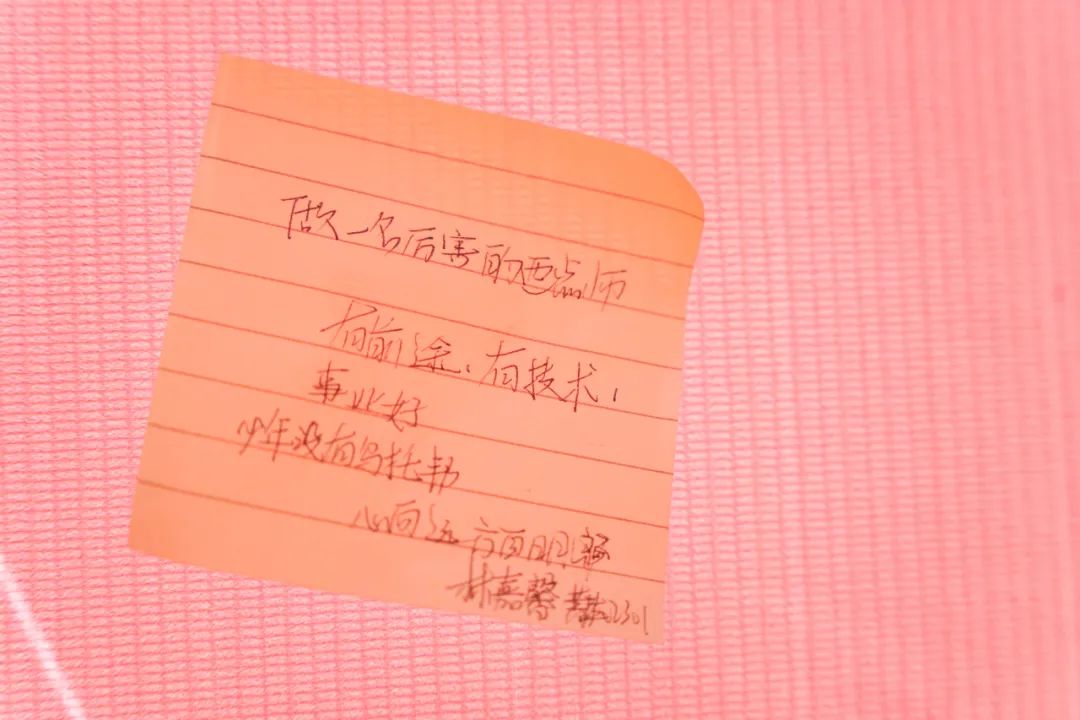 做一名厉害的西点师
有前途、有技术,
事业好
少年没有乌托邦
心向远方自明朗
林嘉馨 2301